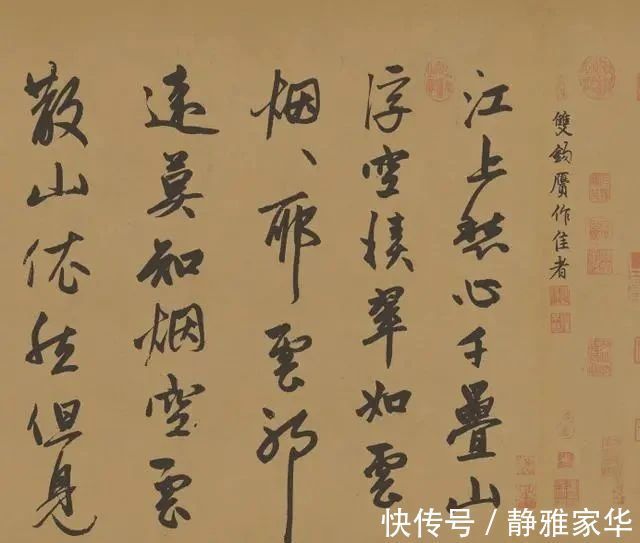 雙鈎贋作佳者
江上愁心千疊山
浮空積翠如雲
烟、耶雲耶
遠莫知烟空雲
散山依然但見
快传号／静雅家华